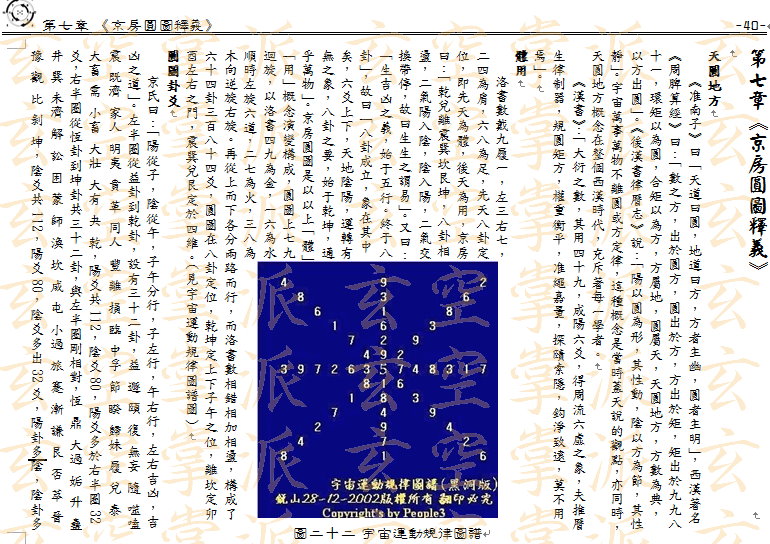 第七章 《京房圓圖釋義》 -40-
第七章《京房圓圖釋義》
天圓地方
《淮南子》曰「天道曰圓，地道曰方，方者主幽，圓者主明」，西漢著名
《周脾算經》曰：「數之方，出於圓方，圓出於方，方出於矩，矩出於九九八
十一，環矩以為圓，合矩以為方，方屬地，圓屬天，天圓地方，方數為典，
以方出圓」。《後漢書律曆志》說：「陽以圓為形，其性動，陰以方為節，其性
靜」。宇宙萬事萬物不離圓或方定律，這種概念是當時蓋天說的觀點，亦同時，
天圓地方概念在整個西漢時代，充斥著每一學者。
《漢書》：「大衍之數，其用四十九，成陽六爻，得周流六虛之象，夫推曆
生律制器，規圓矩方，權重衡平，準繩嘉量，探賾索隱，鈎淨致遠，莫不用
焉」。
體用
洛書數戴九履一，左三右七，
二四為肩，六八為足，先天八卦定
位，即先天為體，後天為用，京房
曰：「乾兌離震巽坎艮坤，八卦相
盪，二氣陽入陰，陰入陽，二氣交
換帶停，故曰生生之謂易」又曰：
「生吉凶之義，始于五行。終于八
卦」，故曰「八卦成立，象在其中
矣，六爻上下，天地陰陽，運轉有
無之象，八卦之要，始于乾坤，通
乎萬物」。京房圓圖是以以上「體」
「用」概念演變構成，圓圖上七九
迴旋，以洛書四九為金，一六為水
順時左旋六道，二七為火，三八為
木向逆旋右旋。再從上而下各分兩路而行，而洛書數相錯相加相盪，構成了
六十四卦三百八十四爻，圓圖在八卦定位，乾坤定上下子午之位，離坎定卯
酉左右之門，震巽兌艮定於四維。（見宇宙運動規律圖譜圖）
圓圖卦爻
京氏曰：「陽從子，陰從午，子午分行，子左行，午右行，左右吉凶，吉
凶之道」。左半圈從益卦到乾卦，設有三十二卦，益 遯 頤 復 無妄 隨 噬嗑
震 既濟 家人 明夷 賁 革 同人 豐 離 損 臨 中孚 節 睽 歸妹 履 兌 泰
大畜 需 小畜 大壯 大有 夬 乾，陽爻共112，陰爻80，陽爻多於右半圈32
爻，右半圈從恆卦到坤卦共三十二卦，與左半圈剛相對，恆 鼎 大過 姤 升 蠱
井 巽 未濟 解 訟 困 蒙 師 渙 坎 咸 屯 小過 旅 蹇 漸 謙 艮 否 萃 晉
豫 觀 比 剝 坤，陰爻共112，陽爻80，陰爻多出32爻，陽卦多陰，陰卦多
4 9 2
8 3 6
6 1 8
1 6 3
7 2 9
4 9 2
3 9 7 2 6 3 5 7 4 8 3 1 7
8 1 6
1 8 3
7 4 9
2 9 4
4 7 2 6
8 1 6
宇宙運動規律圖譜(黑洞版)
銳山28-12-2002版權所有 翻印必究
Copyright's by People3
圖二十二 宇宙運動規律圖譜
玄空掌派